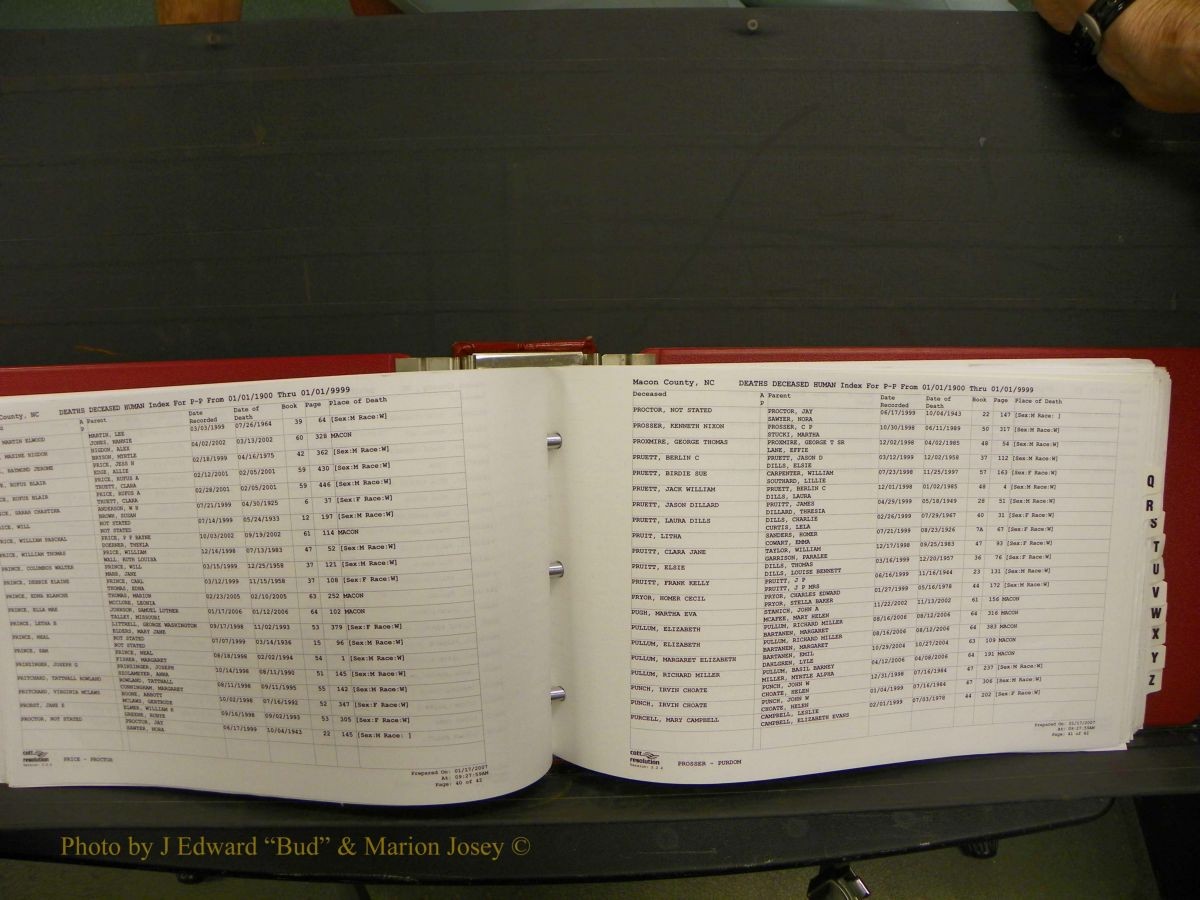 County, NC DEATHS DECEASED HUMAN Index For P-P From 01/01/1900 Thru 01/01/9999
A Parent Date Recorded Date of Death Book Page Place of Death
P
MARTIN ELWOOD MARTIN, LEE 03/03/1999 07/26/1964 39 64 [Sex:M Race:W]
JONES, NANNIE
MAXINE HIGDON HIGDON, ALEX 04/02/2002 03/13/2002 60 328 MACON
BRYSON, MYRTLE
RAYMOND JEROME PRICE, JESS N 02/18/1999 04/16/1975 42 362 [Sex:M Race:W]
EDGE, ALLIE
RUFUS BLAIR PRICE, RUFUS A 02/12/2001 02/05/2001 59 430 [Sex:M Race:W]
TRUETT, CLARA
RUFUS BLAIR PRICE, RUFUS A 02/28/2001 02/05/2001 59 446 [Sex:M Race:W]
TRUETT, CLARA
SARAH CHASTIRA ANDERSON, W B 07/21/1999 04/30/1925 6 37 [Sex:F Race:W]
BROWN, SUSAN
WILL NOT STATED 07/14/1999 05/24/1933 12 197 [Sex:M Race:W]
NOT STATED
WILLIAM PASCHAL PRICE, P P RAYNE 10/03/2002 09/19/2002 61 114 MACON
DOERNER, THEKLA
PRICE, WILLIAM THOMAS PRICE, WILLIAM 12/16/1998 07/13/1983 47 52 [Sex:M Race:W]
WALL, RUTH LOUISA
PRINCE, COLUMBUS WALTER PRINCE, WILL 03/15/1999 12/25/1958 37 121 [Sex:M Race:W]
MABE, JANE
PRINCE, DEBBIE ELAINE PRINCE, CARL 03/12/1999 11/15/1958 37 108 [Sex:F Race:W]
THOMAS, EDNA
PRINCE, EDNA BLANCHE THOMAS, MARION 02/23/2005 02/10/2005 63 252 MACON
MCCLURE, LEONIA
PRINCE, ELLA MAE JOHNSON, SAMUEL LUTHER 01/17/2006 01/12/2006 64 102 MACON
TALLEY, MISSOURI
PRINCE, LETHA B LITTRELL, GEORGE WASHINGTON 09/17/1998 11/02/1993 53 379 [Sex:F Race:W]
ELDERS, MARY JANE
PRINCE, NEAL NOT STATED 07/07/1999 03/14/1936 15 96 [Sex:M Race:W]
NOT STATED
PRINCE, SAM PRINCE, NEAL 08/18/1998 02/02/1994 54 1 [Sex:M Race:W]
FISHER, MARGARET
PRINZINGER, JOSEPH G PRINZINGER, JOSEPH 10/14/1998 08/11/1990 51 145 [Sex:M Race:W]
PRITCHARD, TATTNALL ROWLAND ROWLAND, TATTNALL 08/11/1998 09/11/1995 55 142 [Sex:M Race:W]
CUNNINGHAM, MARGARET
PRITCHARD, VIRGINIA MCLAWS BOONE, ABBOTT 10/02/1998 07/16/1992 52 347 [Sex:F Race:W]
MCLAWS, GERTRUDE
PROBST, JANE E ELMER, WILLIAM H 09/16/1998 09/02/1993 53 305 [Sex:F Race:W]
GREENE, RUBYE
PROCTOR, NOT STATED PROCTOR, JAY 06/17/1999 10/04/1943 22 145 [Sex:M Race: ]
SAWYER, NORA
cott resolution
PRICE - PROCTOR
Prepared On: 01/17/2007
At: 09:27:59AM
Page: 40 of 42
Macon County, NC DEATHS DECEASED HUMAN Index For P-P From 01/01/1900 Thru 01/01/9999
Deceased A Parent Date Recorded Date of Death Book Page Place of Death
P
PROCTOR, NOT STATED PROCTOR, JAY 06/17/1999 10/04/1943 22 147 [Sex:M Race: ]
SAWYER, NORA
PROSSER, KENNETH NIXON PROSSER, C P 10/30/1998 06/11/1989 50 317 [Sex:M Race:W]
STUCKI, MARTHA
PROXMIRE, GEORGE THOMAS PROXMIRE, GEORGE T SR 12/02/1998 04/02/1985 48 54 [Sex:M Race:W]
LANE, EFFIE
PRUETT, BERLIN C PRUETT, JASON D 03/12/1999 12/02/1958 37 112 [Sex:M Race:W]
DILLS, ELSIE
PRUETT, BIRDIE SUE CARPENTER, WILLIAM 07/23/1998 11/25/1997 57 163 [Sex:F Race:W]
SOUTHARD, LILLIE
PRUETT, JACK WILLIAM PRUETT, BERLIN C 12/01/1998 01/02/1985 48 4 [Sex:M Race:W]
DILLS, LAURA
PRUETT, JASON DILLARD PRUITT, JAMES 04/29/1999 05/18/1949 28 51 [Sex:M Race:W]
DILLARD, THRESIA
PRUETT, LAURA DILLS DILLS, CHARLIE 02/26/1999 07/29/1967 40 31 [Sex:F Race:W]
CURTIS, LELA
PRUIT, LITHA SANDERS, HOMER 07/21/1999 08/23/1926 7A 67 [Sex:F Race:W]
COWART, EMMA
PRUITT, CLARA JANE TAYLOR, WILLIAM 12/17/1998 09/25/1983 47 93 [Sex:F Race:W]
GARRISON, PARALEE
PRUITT, ELSIE DILLS, THOMAS 03/16/1999 12/20/1957 36 76 [Sex:F Race:W]
DILLS, LOUISE BENNETT
PRUITT, FRANK KELLY PRUITT, J P 06/16/1999 11/16/1944 23 131 [Sex:M Race:W]
PRUITT, J P MRS
PRYOR, HOMER CECIL PRYOR, CHARLES EDWARD 01/27/1999 05/16/1978 44 172 [Sex:M Race:W]
PRYOR, STELLA BAKER
PUSH, MARTHA EVA STANICH, JOHN A 11/22/2002 11/13/2002 61 156 MACON
MCAFEE, MARY HELEN
PULLUM, ELIZABETH PULLUM, RICHARD MILLER 08/16/2006 08/12/2006 64 316 MACON
BARTANEN, MARGARET
PULLUM, ELIZABETH PULLUM, RICHARD MILLER 08/16/2006 08/12/2006 64 383 MACON
BARTANEN, MARGARET
PULLUM, MARGARET ELIZABETH BARTANEN, EMIL 10/29/2004 10/27/2004 63 109 MACON
DAHLGREN, LYLE
PULLUM, RICHARD MILLER PULLUM, BASIL BARNEY 04/12/2006 04/08/2006 64 191 MACON
MILLER, MYRTLE ALPHA
PUNCH, IRVIN CHOATE PUNCH, JOHN W 12/31/1998 07/16/1984 47 237 [Sex:M Race:W]
CHOATE, HELEN
PUNCH, IRVIN CHOATE PUNCH, JOHN W 01/04/1999 07/16/1984 47 306 [Sex:M Race:W]
CHOATE, HELEN
PURCELL, MARY CAMPBELL CAMPBELL, LESLIE 02/01/1999 07/03/1978 44 202 [Sex:F Race:W]
CAMPBELL, ELIZABETH EVANS
cott resolution
PROSSER - PURDOM
Prepared On: 01/17/2007
At: 09:27:59AM
Page: 41 of 42
Q
R
S
T
U
V
W
X
Y
Z
Photo by J Edward “Bud” & Marion Josey ©